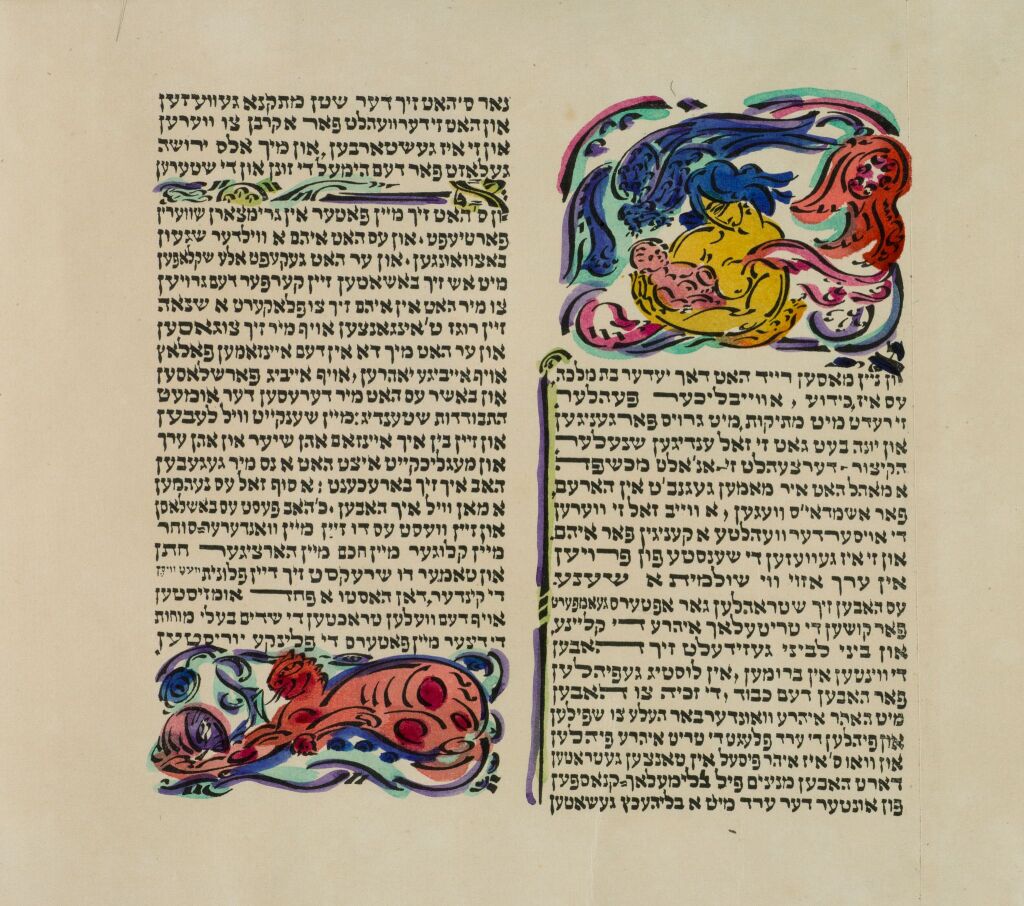 ון ניין מאסען רייד האט דאך יעדער בת מלכה
עס איז, כידוע, אווייבליכער פעהלער
זי רעדט מיט מתיקות, מיט גרויס פאר געניגען
און יונה בעט גאט זי זאל ענדיגען שנעלער
הקיצור - דערצעהלט זי - אנ'אלט מכשפה
א מאהל האט איר מאמען געגנב'ט אין הארעם
פאר אשמדאי'ס וועגען, א ווייב זאל זי ווערען
די אויסער דער וועהלטע א קעניגין פאר איהם
און זי איז געוועזען די שענסטע פון פרויען
אין ערך אזוי ווי שולמיה א שענע
עס האבען זיך שטראהלען גאר אפטערס געאמפערט
פאר קושען די טריטעלאך איהרע די קליינע
און ביני לביני געזידעלט זיך האבען
די ווינטען אין ברומען, אין לוסטיג געפיהלען
פאר האבען דעם כבוד, די זכיה צו האבען
מיט האהר איהרע וואונדערבאר העלע צו שפילען
און פיהלען די ערד פלעגט די טריט איהרע פיהלען
און וואו ס'איז איהר פיסעל אין טאנצען געטראטען
דארט האבען מנינים פיל בלימעלאך-קנאספען
פון אונטער דער ערד מיט א בליהעכץ געשאטען
נאר ס'האט זיך דער שטן מתקנא געוועזען
און האט זי דערוועהלט פאר א קרבן צו ווערען
און זי איז געשטארבען, און מיך אלס ירושה
געלאזט פאר דעם הימעל די זונן און די שטערען
ון ס'האט זיך מיין פאטער אין גרימצארן שווערין
פארטיעפט, און עס האט איהם א ווילדער שגעון
באצוואונגען, און ער האט געקעפט אלע שקלאפען
מיט אש זיך באשאטען זיין קערפער דעם גרויען
צו מיר האט אין איהם זיך צופלאקערט א שנאה
זיין רוגז ט'אינגאנצען אויף מיר זיך צוגאסען
און ער האט מיך דא אין דעם איינזאמען פאלאץ
אויף אייביגע יאהרען, אויף אייביג פארשלאסען
און באשר עס האט מיר דערעסען דער אומעט
התבודדות שטענדיג: מיין שענקייט וויל לעבען
און זיין בין איך איינזאם אהן שיעור און אהן ערך
און מעגליכקייט איצט האט א נס מיר געגעבען
האב איך זיך בארעכענט: א סוף זאל עס נעהמען
א מאן וויל איך האבען, כ'האב פעסט עס באשלאסן
און זיין וועסט עס דו זיין מיין וואנדערער-סוחר
מיין קלוגער מיין חכם מיין הארציגער חתן
און טאמער דו שרעקסט זיך דיין פלונית וועט וויסן
די קינדער, דאן האסטו א פחד אומזיסטען
אויף דעם וועלען טראכטען די שדים בעלי מוחות
די דצער מיין פאטערס די פלינקע יוריסטען